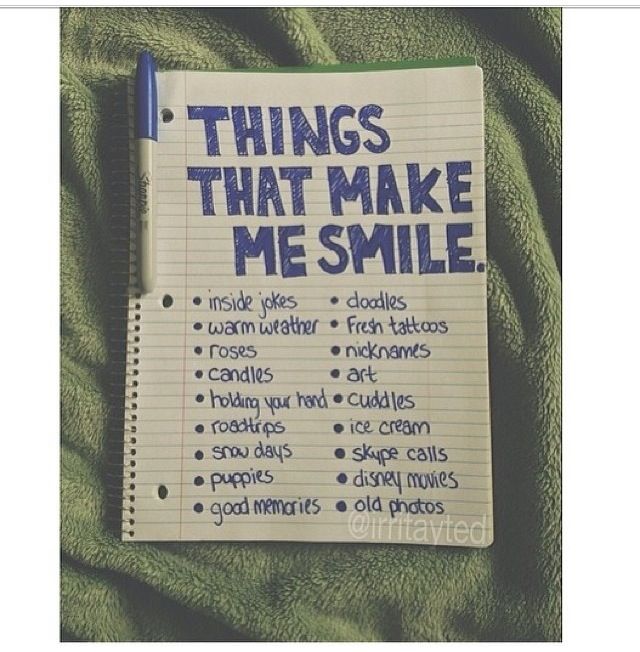 THINGS
THAT MAKE
ME SMILE.
• inside jokes
• warm weather
• roses
• candles
• holding your hand
• roadtrips
• snow days
• puppies
• good memories
• doodles
• Fresh tattoos
• nicknames
• art
• cuddles
• ice cream
• skype calls
• disney movies
• old photos
Sharpie
@irritayted